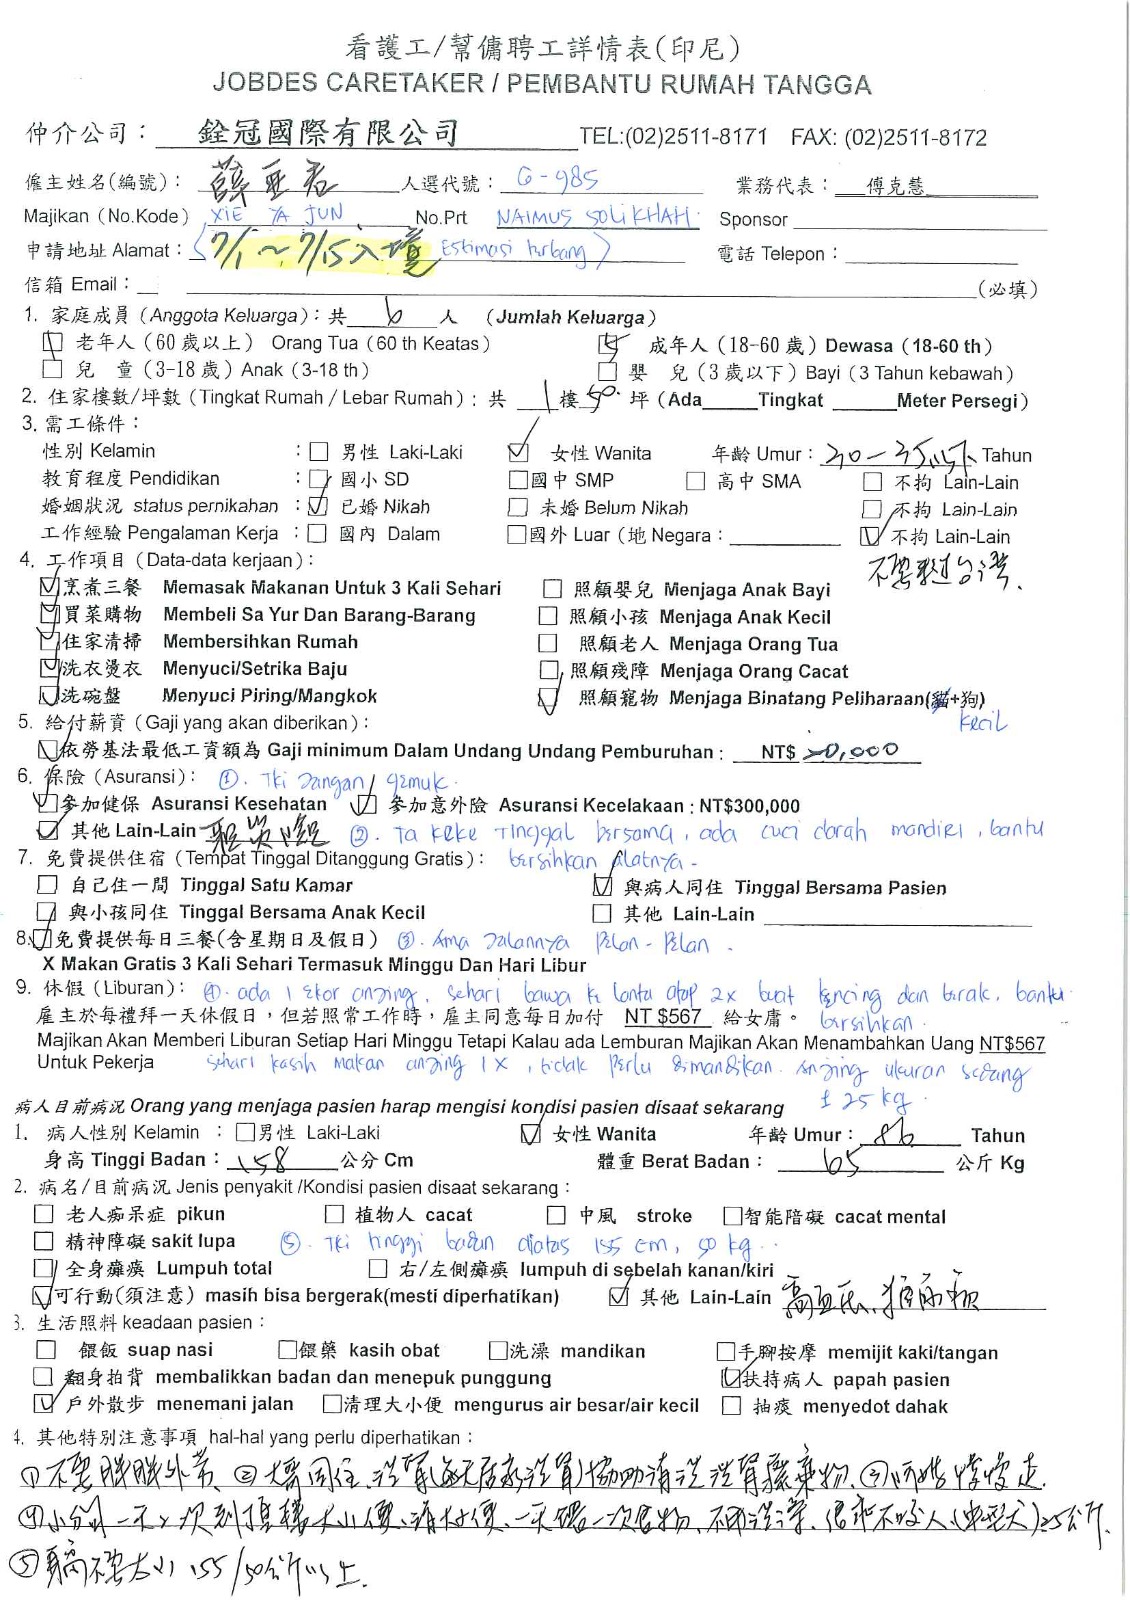 看護工/幫傭聘工詳情表(印尼)
JOBDES CARETAKER / PEMBANTU RUMAH TANGGA
仲介公司： 銓冠國際有限公司 TEL:(02)2511-8171 FAX: (02)2511-8172
僱主姓名(編號)： 薛亞君 人選代號： G-985 業務代表： 傅克慧
Majikan (No.Kode) XIE YA JUN No.Prt NAIMUS SOLIKHAH Sponsor
申請地址 Alamat： (7/1～7/15入境 Estimasi terbang) 電話 Telepon：
信箱 Email： (必填)
1. 家庭成員 (Anggota Keluarga)：共 6 人 (Jumlah Keluarga)
老年人 (60 歲以上) Orang Tua (60 th Keatas) 成年人 (18-60 歲) Dewasa (18-60 th)
兒 童 (3-18 歲) Anak (3-18 th) 嬰 兒 (3 歲以下) Bayi (3 Tahun kebawah)
2. 住家樓數/坪數 (Tingkat Rumah / Lebar Rumah)：共 1 樓 50 坪 (Ada Tingkat Meter Persegi)
3. 需工條件：
性別 Kelamin ： 男性 Laki-Laki 女性 Wanita 年齡 Umur： 30-35以下 Tahun
教育程度 Pendidikan ： 國小 SD 國中 SMP 高中 SMA 不拘 Lain-Lain
婚姻狀況 status pernikahan ： 已婚 Nikah 未婚 Belum Nikah 不拘 Lain-Lain
工作經驗 Pengalaman Kerja ： 國內 Dalam 國外 Luar (地 Negara： 不拘 Lain-Lain
4. 工作項目 (Data-data kerjaan)： 不要來過台灣.
烹煮三餐 Memasak Makanan Untuk 3 Kali Sehari 照顧嬰兒 Menjaga Anak Bayi
買菜購物 Membeli Sa Yur Dan Barang-Barang 照顧小孩 Menjaga Anak Kecil
住家清掃 Membersihkan Rumah 照顧老人 Menjaga Orang Tua
洗衣燙衣 Menyuci/Setrika Baju 照顧殘障 Menjaga Orang Cacat
洗碗盤 Menyuci Piring/Mangkok 照顧寵物 Menjaga Binatang Peliharaan(貓+狗)
5. 給付薪資 (Gaji yang akan diberikan)： kecil
依勞基法最低工資額為 Gaji minimum Dalam Undang Undang Pemburuhan： NT$ 20,000
6. 保險 (Asuransi)： ①. TKI Jangan gemuk.
參加健保 Asuransi Kesehatan 參加意外險 Asuransi Kecelakaan : NT$300,000
其他 Lain-Lain ②. Ta keke Tinggal bersama, ada cuci darah mandiri, bantu
7. 免費提供住宿 (Tempat Tinggal Ditanggung Gratis)： bersihkan alatnya -
自己住一間 Tinggal Satu Kamar 與病人同住 Tinggal Bersama Pasien
與小孩同住 Tinggal Bersama Anak Kecil 其他 Lain-Lain
8. 免費提供每日三餐(含星期日及假日) ③. Ama Jalannya Pelan-Pelan.
X Makan Gratis 3 Kali Sehari Termasuk Minggu Dan Hari Libur
9. 休假 (Liburan)： ④. ada 1 ekor anjing, sehari bawa ke lantai atap 2x buat kencing dan berak, bantu
雇主於每禮拜一天休假日，但若照常工作時，雇主同意每日加付 NT $567 給女庸。 bersihkan.
Majikan Akan Memberi Liburan Setiap Hari Minggu Tetapi Kalau ada Lemburan Majikan Akan Menambahkan Uang NT$567
Untuk Pekerja sehari kasih makan anjing 1x, tidak perlu dimandikan. Anjing ukuran sedang
病人目前病況 Orang yang menjaga pasien harap mengisi kondisi pasien disaat sekarang ± 25 kg.
1. 病人性別 Kelamin ： 男性 Laki-Laki 女性 Wanita 年齡 Umur： 86 Tahun
身高 Tinggi Badan： 158 公分 Cm 體重 Berat Badan： 65 公斤 Kg
2. 病名/目前病況 Jenis penyakit /Kondisi pasien disaat sekarang：
老人痴呆症 pikun 植物人 cacat 中風 stroke 智能陪礙 cacat mental
精神障礙 sakit lupa ⑤. TKI tinggi badan diatas 155 cm, 50 kg.
全身癱瘓 Lumpuh total 右/左側癱瘓 lumpuh di sebelah kanan/kiri
可行動(須注意) masih bisa bergerak(mesti diperhatikan) 其他 Lain-Lain 高血壓、
3. 生活照料 keadaan pasien：
餵飯 suap nasi 餵藥 kasih obat 洗澡 mandikan 手腳按摩 memijit kaki/tangan
翻身拍背 membalikkan badan dan menepuk punggung 扶持病人 papah pasien
戶外散步 menemani jalan 清理大小便 mengurus air besar/air kecil 抽痰 menyedot dahak
4. 其他特別注意事項 hal-hal yang perlu diperhatikan：
①不要胖胖外勞. ②大哥同住.洗腎(每天居家洗腎)協助清洗洗腎藥物. ③阿嬤慢慢走.
④小分狗 一天2次到頂樓大小便、清好便、一天餵一次食物、不用洗澡、很乖不咬人(中型犬)25公斤.
⑤身高不要太小 155/50公斤以上.